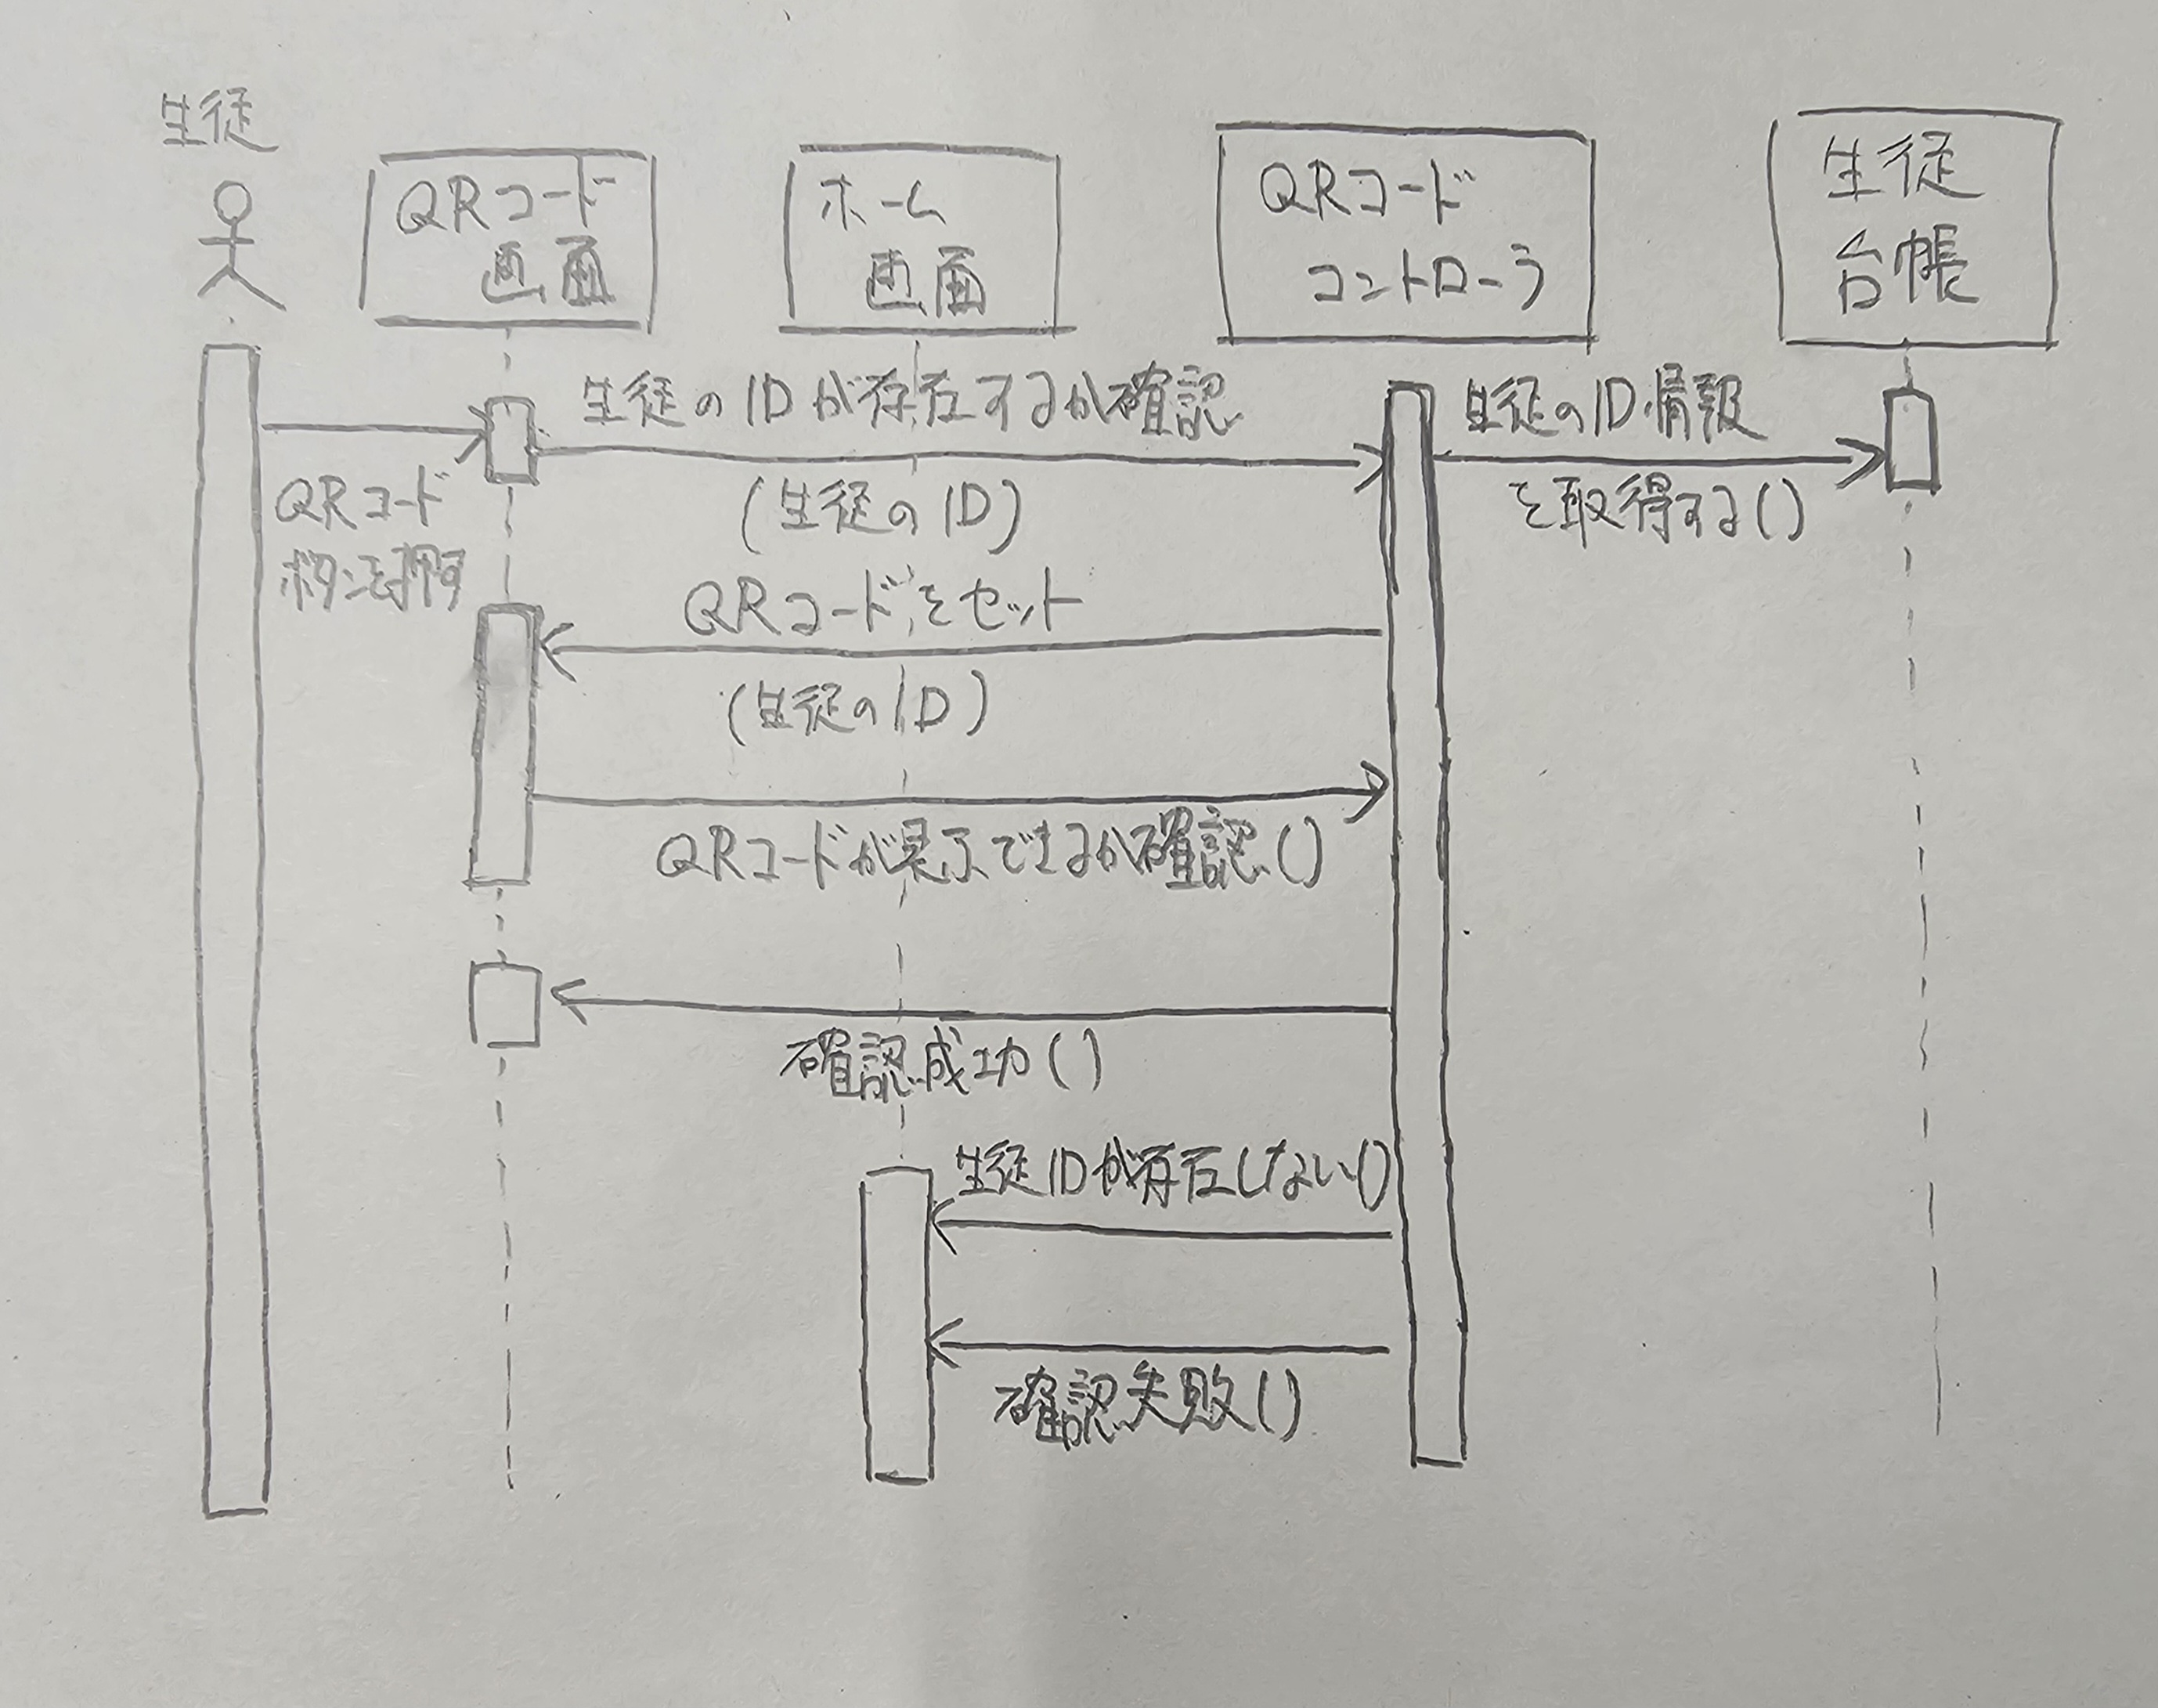 生徒
QRコード
画面
ホーム
画面
QRコード
コントローラ
生徒
台帳
生徒のIDが存在するか確認
(生徒のID)
生徒のID情報
を取得する()
QRコード
ボタンを押す
QRコードをセット
(生徒のID)
QRコードが表示できるか確認()
確認成功()
生徒IDが存在しない()
確認失敗()